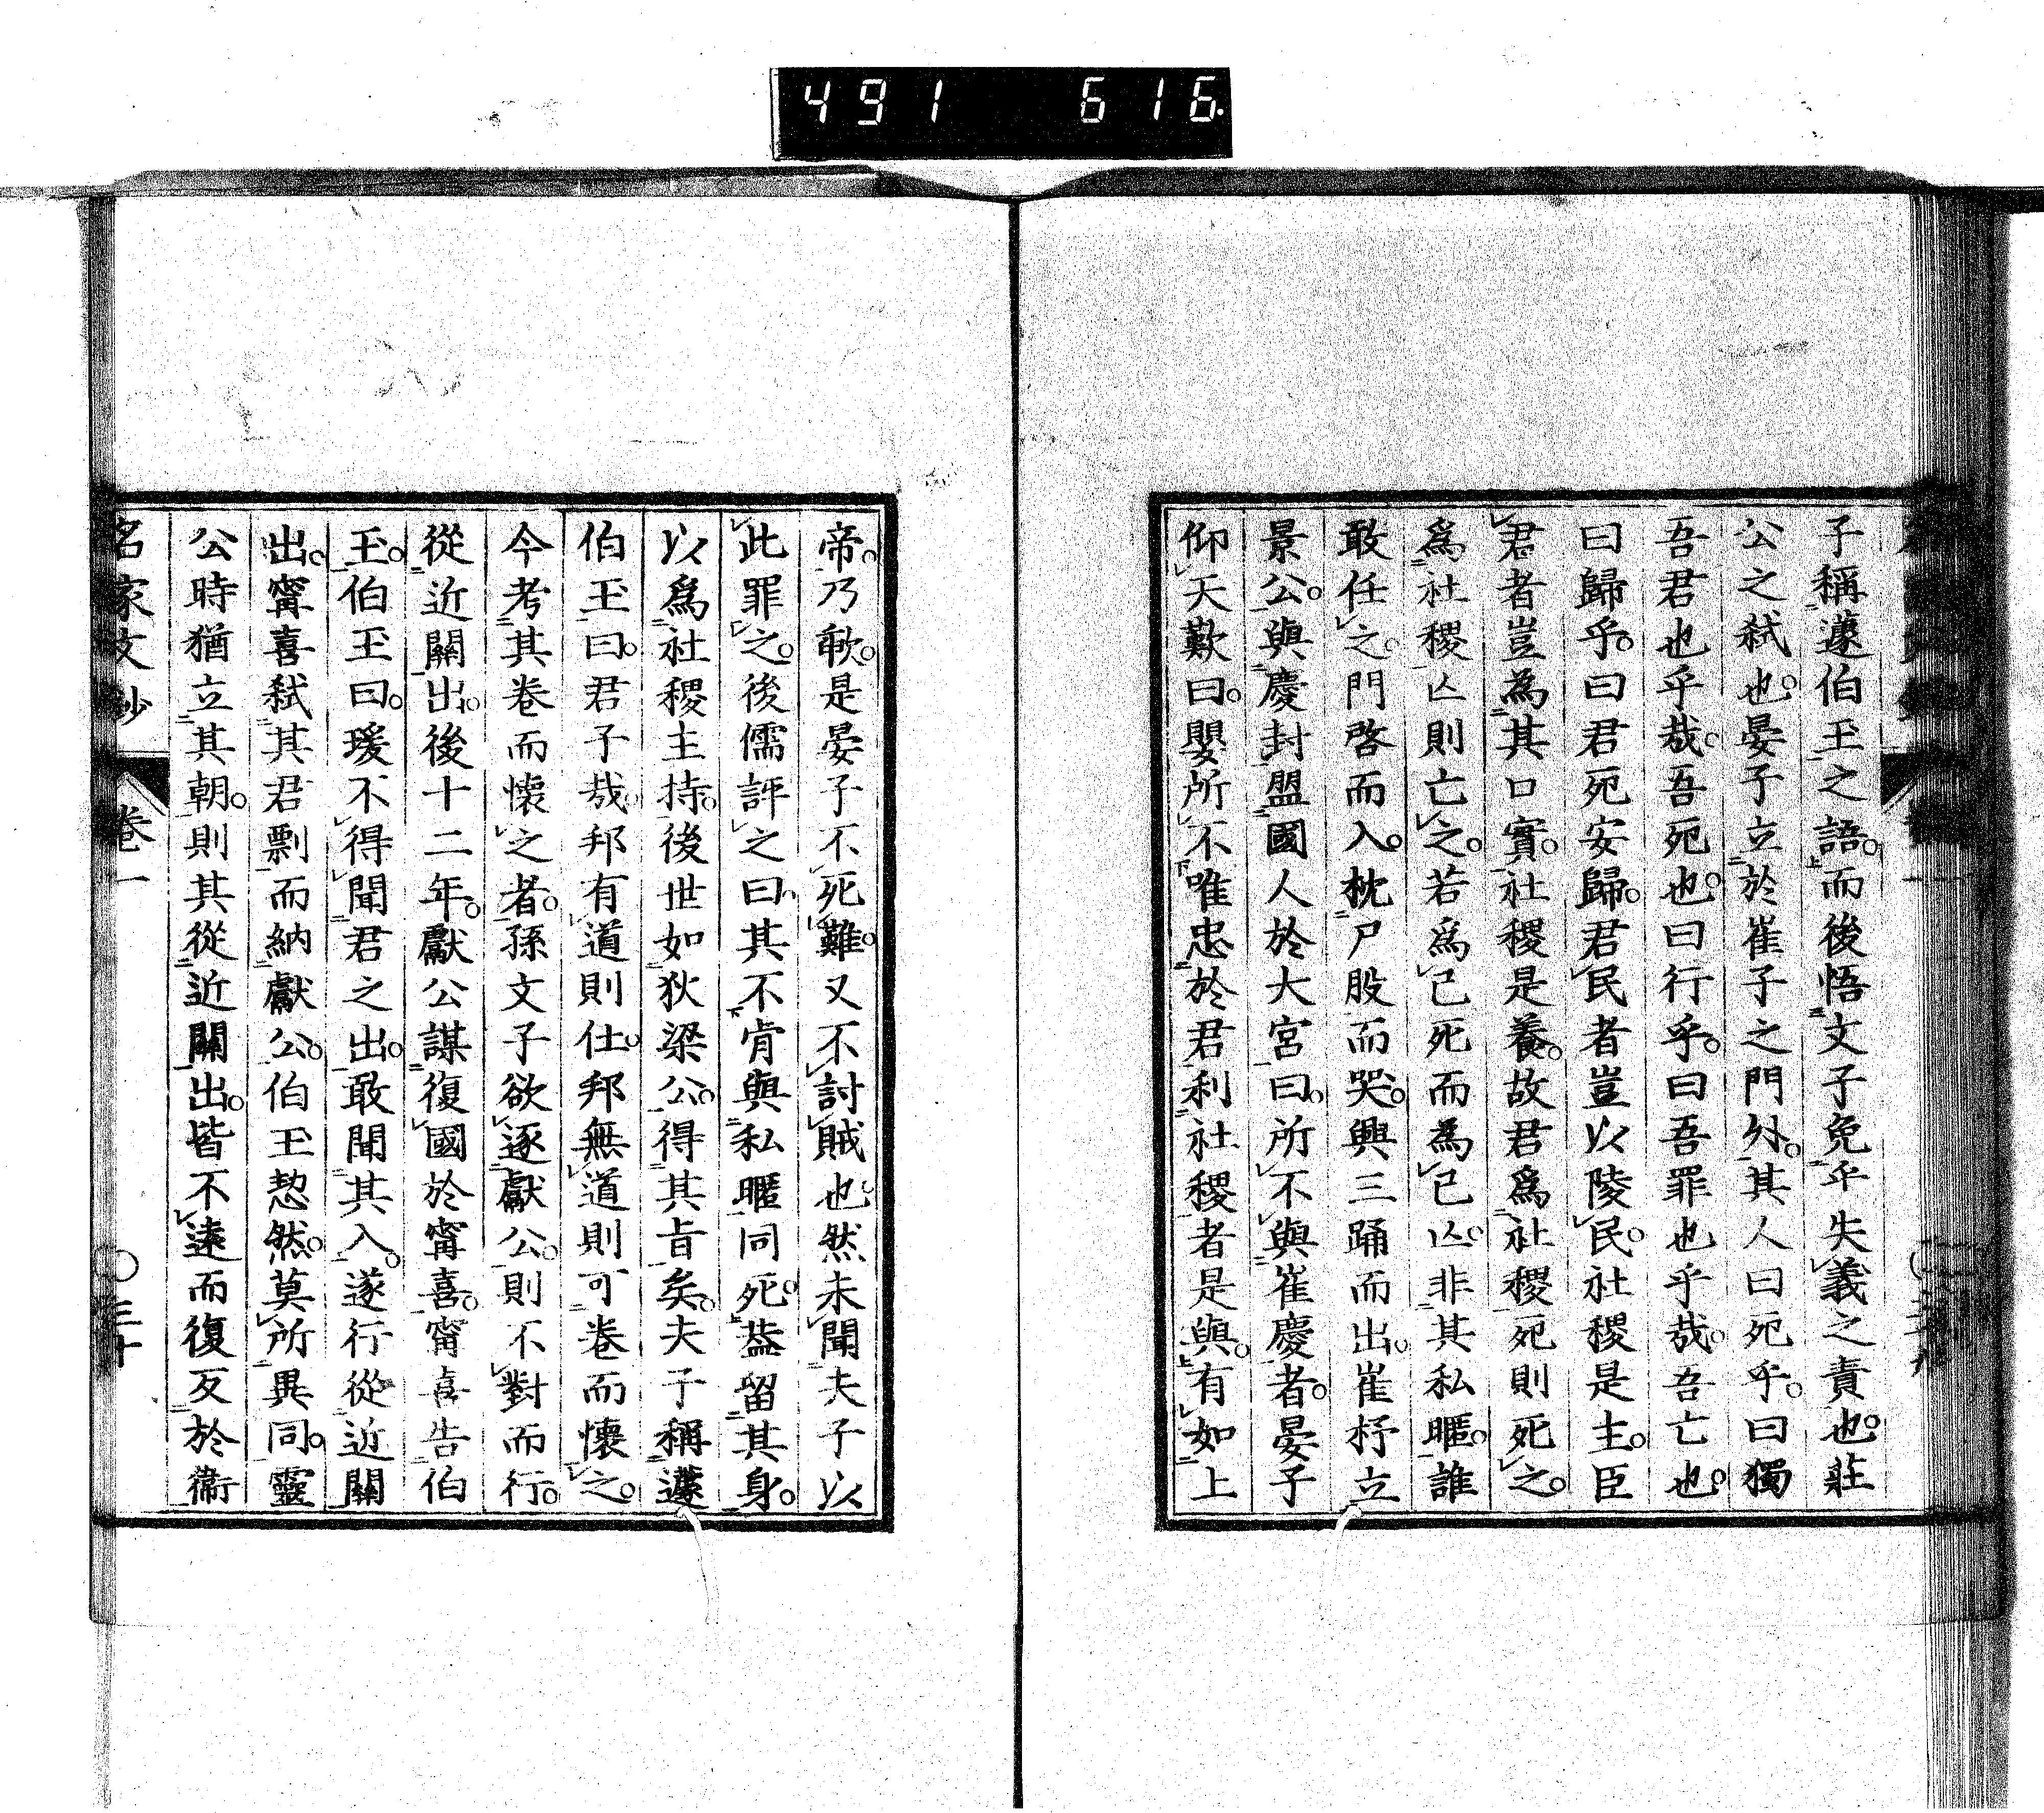 491 616
子稱蘧伯玉之語。而後悟文子免乎失義之責也。莊
公之弒也。晏子立於崔子之門外。其人曰死乎。曰獨
吾君也乎哉。吾死也。曰行乎。曰吾罪也乎哉。吾亡也。
曰歸乎。曰君死安歸。君民者豈以陵民。社稷是主。臣
君者豈爲其口實。社稷是養。故君爲社稷死則死之。
爲社稷亾則亡之。若爲己死而爲己亾。非其私暱。誰
敢任之。門啓而入。枕尸股而哭。興三踊而出。崔杼立
景公。與慶封盟國人於大宮曰。所不與崔慶者。晏子
仰天歎曰。嬰所不唯忠於君利社稷者是與。有如上
帝。乃歃。是晏子不死難。又不討賊也。然未聞夫子以
此罪之。後儒評之曰。其不肯與私暱同死。蓋留其身。
以爲社稷主持。後世如狄梁公。得其旨矣。夫子稱蘧
伯玉曰。君子哉。邦有道則仕。邦無道則可卷而懷之。
今考其卷而懷之者。孫文子欲逐獻公。則不對而行。
從近關出。後十二年。獻公謀復國於甯喜。甯喜告伯
玉。伯玉曰。瑗不得聞君之出。敢聞其入。遂行從近關
出。甯喜弒其君剽而納獻公。伯玉恝然。莫所異同。靈
公時猶立其朝。則其從近關出。皆不遠而復反於衞
名家文抄 卷一 ○三十